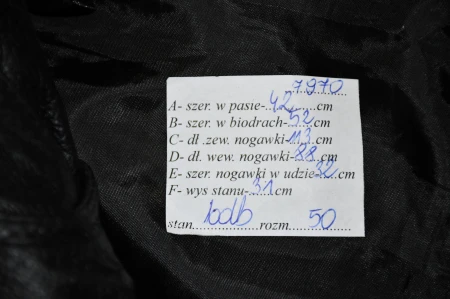 7970
A- szer. w pasie-42.......cm
B- szer. w biodrach-52..cm
C- dł .zew. nogawki-113.cm
D- dł. wew. nogawki-88.cm
E- szer. nogawki w udzie-32.cm
F- wys stanu-31.cm
stan....bdb........rozm....50......